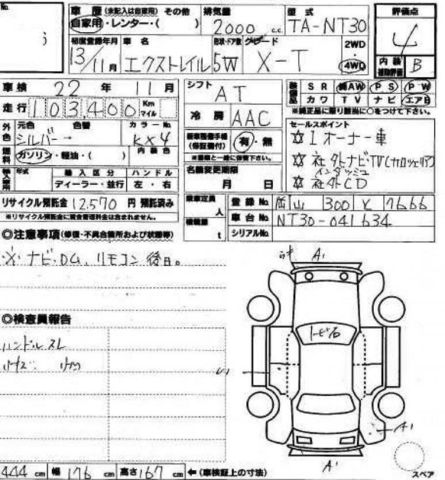 車歴 (未記入は自家用) その他 排気量 型式 評価点
自家用・レンター・( ) 2000 cc TA-NT30 4
初度登録年月 車名 形状・ドア数 グレード 2WD 内装
13/11月 エクストレイル 5W X-T 4WD 補助評価 B
車検 22年 11月 シフト AT 装備品 SR 純AW PS PW
走行 103,400 Km マイル 冷房 AAC カワ TV ナビ エアB
外色 元色 色替 カラーNo. セールスポイント
シルバー→ KX4 新車整備手帳 (保証書付) 有・無 ☆1オーナー車
燃料 ガソリン・軽油・( ) 内装色 ☆社外ナビTV(カロッツェリア)
輸入車 輸入区分 ハンドル 名義変更期限 インダッシュ
ディーラー・並行 左・右 月 日 ☆社外CD
リサイクル預託金 12,570 円 預託済み 乗車定員 人 登録No. 岡山 300 と 7666
※リサイクル預託金に資金管理料金は含まれません。 積載量 車台No. NT30-041634
◎注意事項(修復・不具合箇所および状態等) シリアルNo.
※ナビ・DVD、リモコン後日。
A1
◎検査員報告
ハンドルスレ
トビ石
A1
A1
444 cm 幅 176 cm 高さ 167 cm ←(車検証上の寸法) スペア